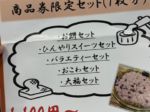 商品券限定セット(1枚分)
・お餅セット
・ひんやりスイーツセット
・バラエティーセット
・おこわセット
・大福セット